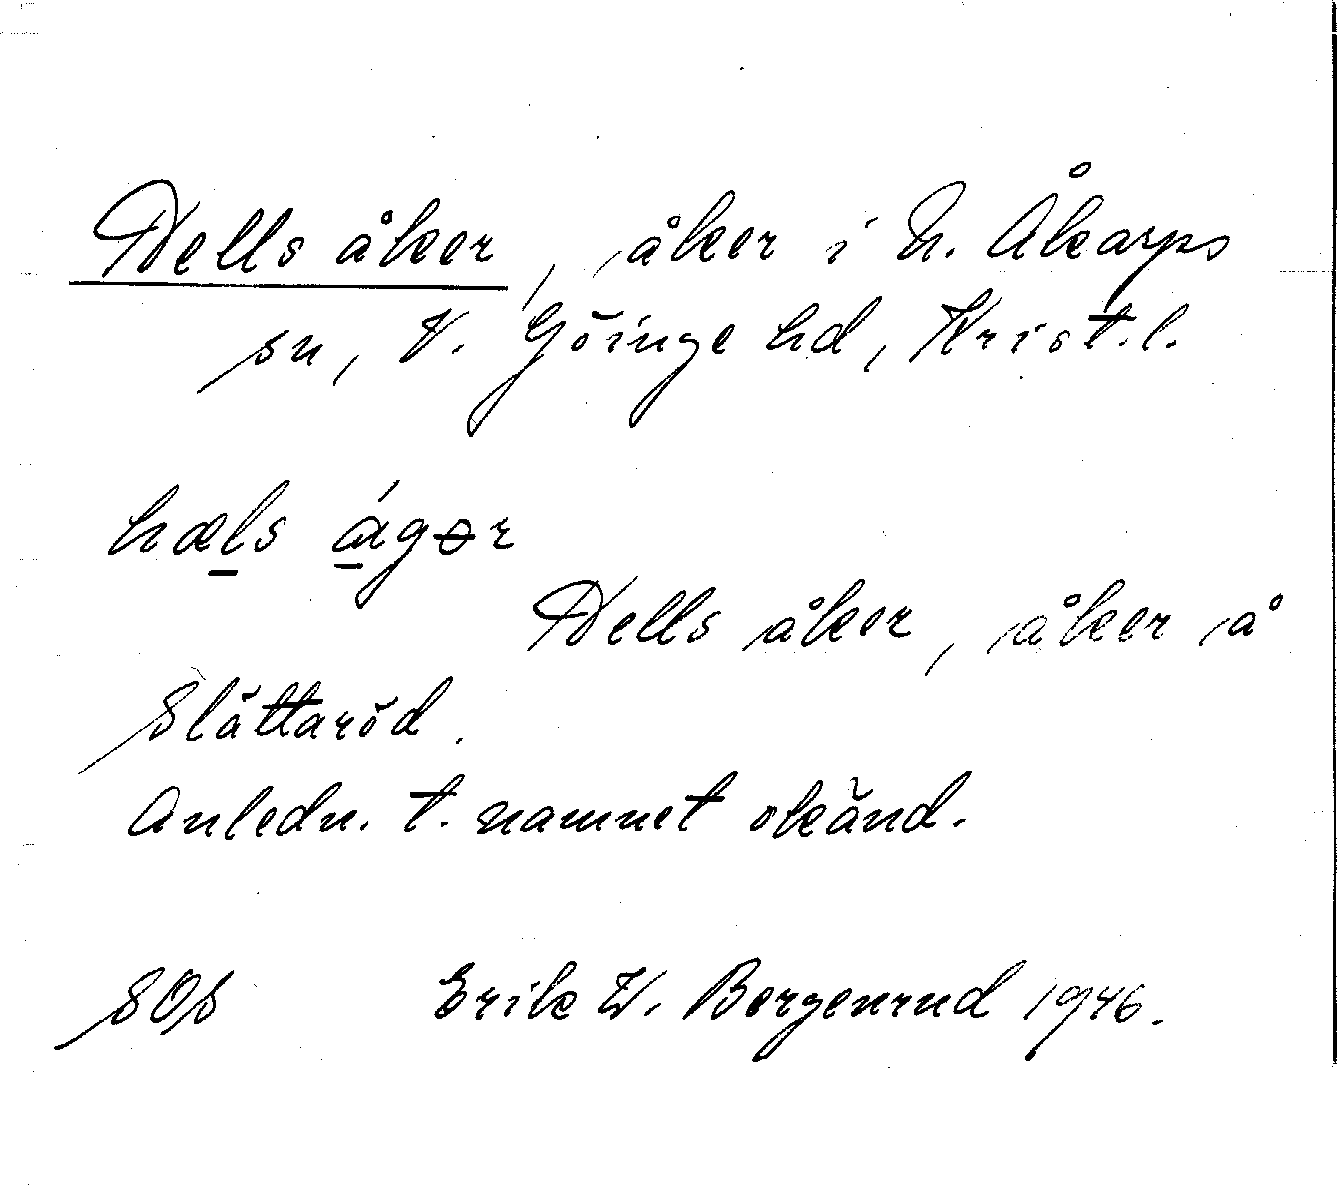 Hells åker, åker i N. Åkarps
sn, V. Göinge hd, Krist.l.
hæls ágər
Hells åker, åker å
Slättaröd.
Anledn. t. namnet okänd.
SOS Erik W. Bergenrud 1946.